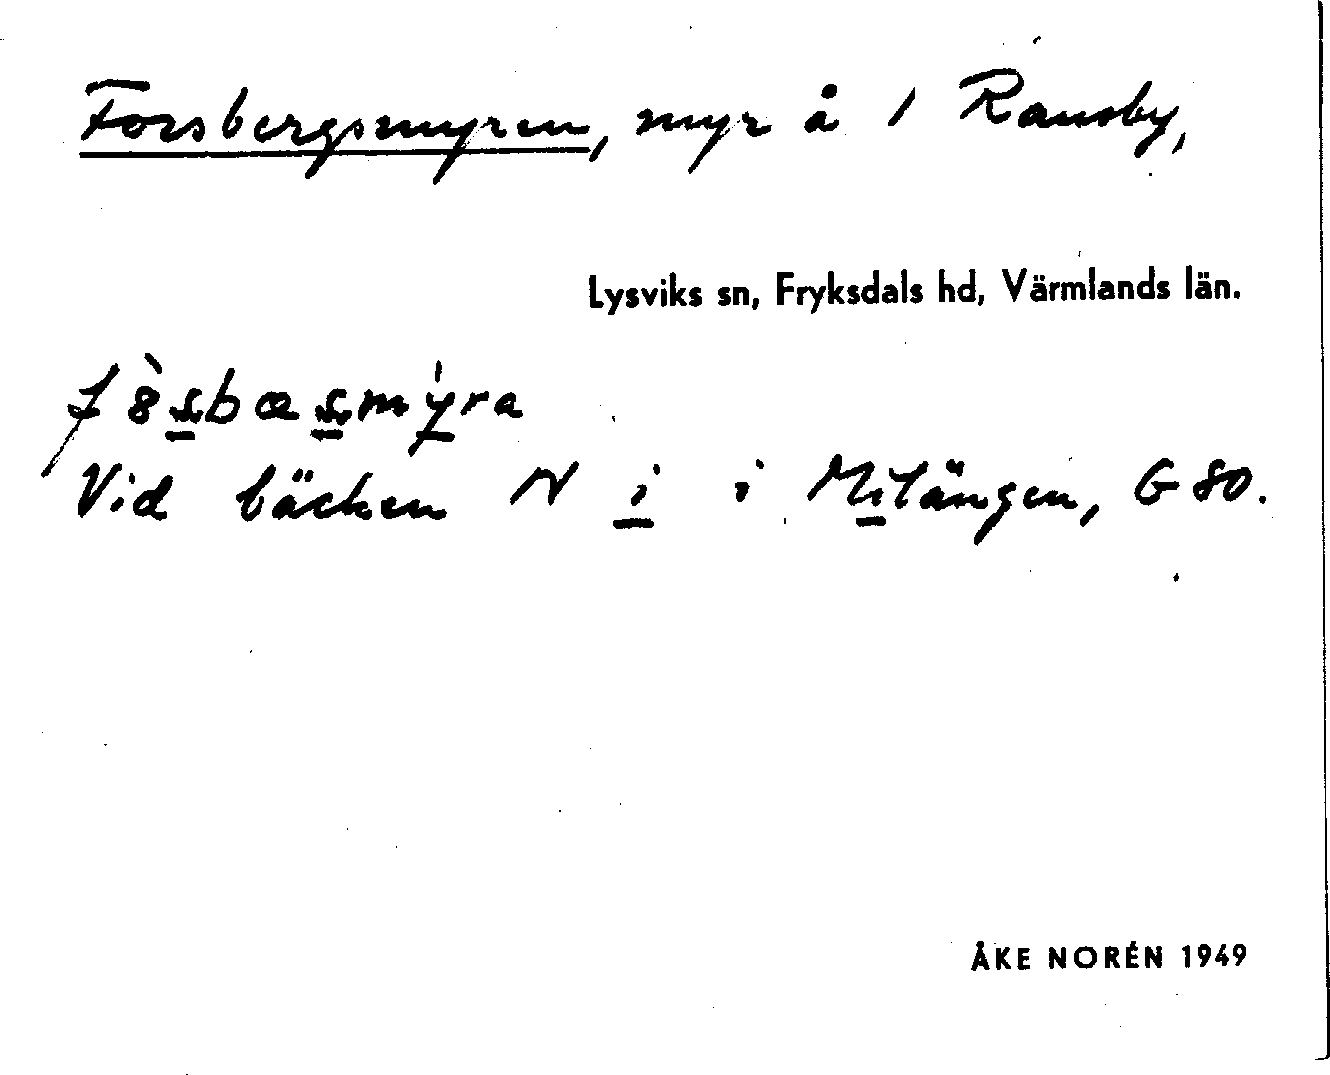 Forsbergsmyren, myr å 1 Ransby,
Lysviks sn, Fryksdals hd, Värmlands län.
f8̀s̲bæs̲mý̲ra
Vid bäcken N i̲ i Mi̲tängen, G 80.
ÅKE NORÉN 1949